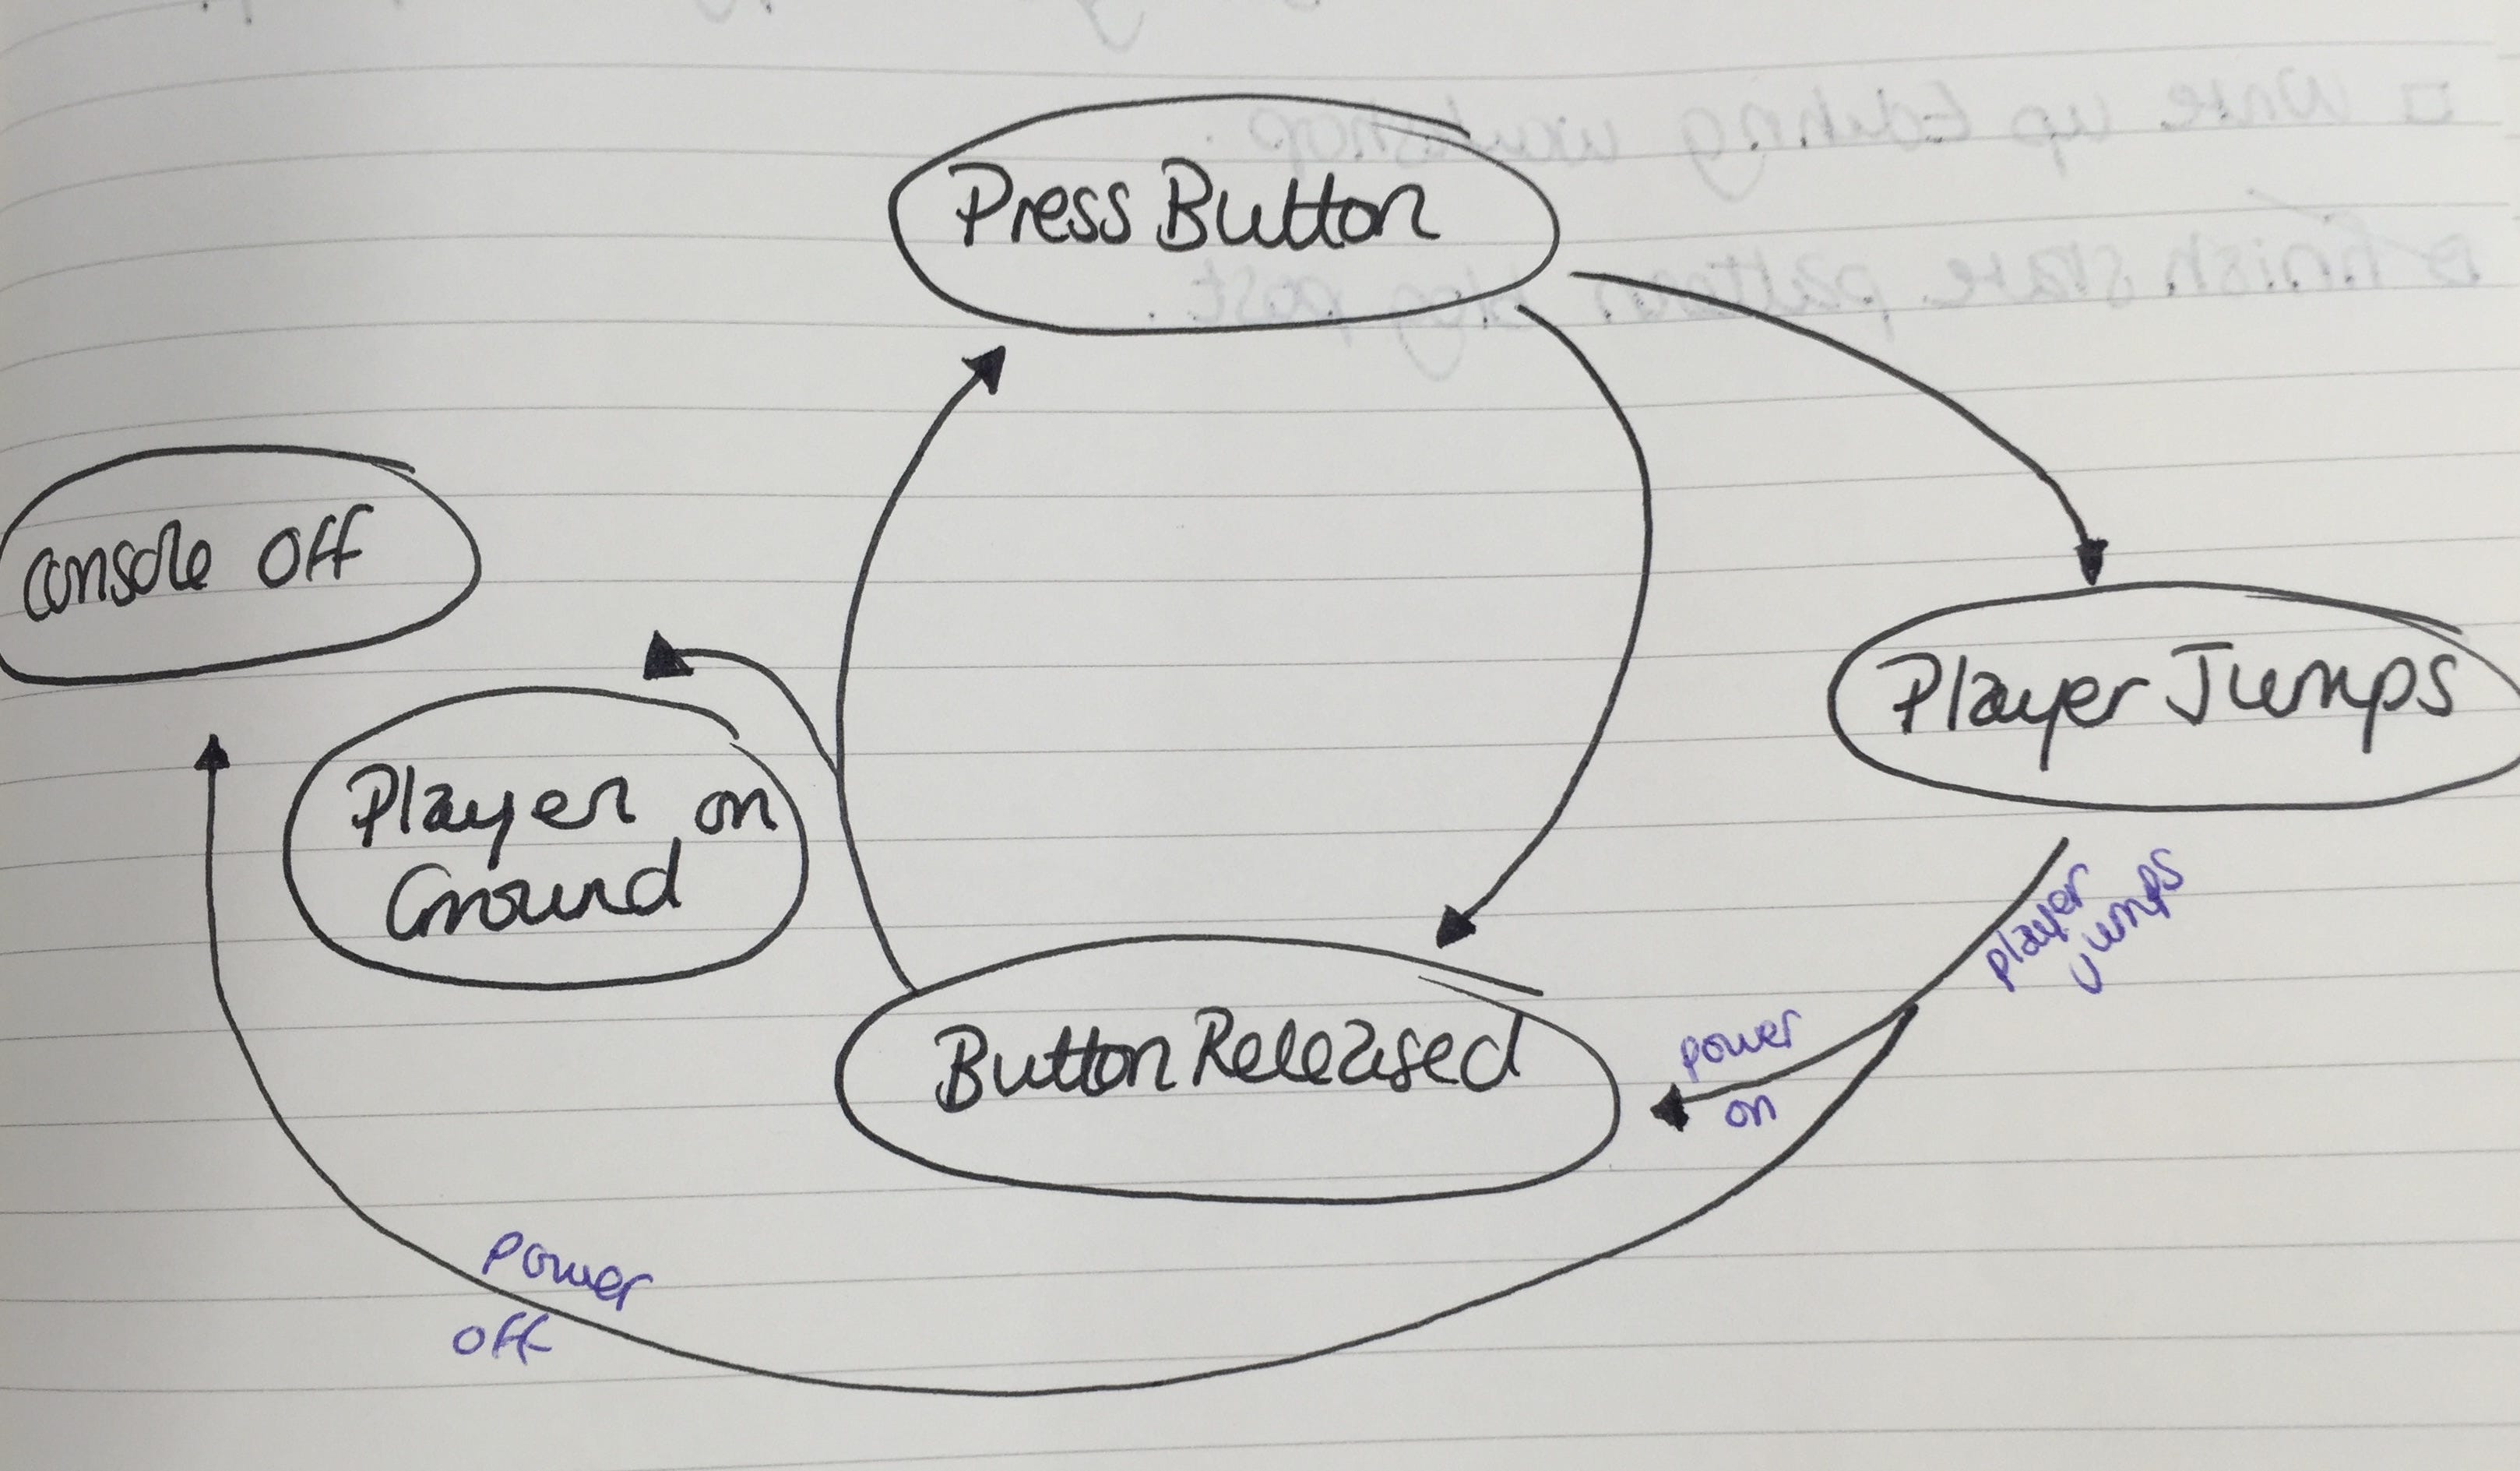 Press Button
console off
Player Jumps
Player on
Ground
player
jumps
power
on
Button Released
Power
off